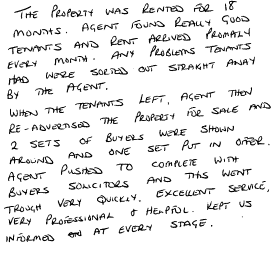 THE PROPERTY WAS RENTED FOR 18
MONTHS. AGENT FOUND REALLY GOOD
TENANTS AND RENT ARRIVED PROMPLY
EVERY MONTH. ANY PROBLEMS TENANTS
HAD WERE SORTED OUT STRAIGHT AWAY
BY THE AGENT.
WHEN THE TENANTS LEFT, AGENT THEN
RE-ADVERTISED THE PROPERTY FOR SALE AND
2 SETS OF BUYERS WERE SHOWN
AROUND AND ONE SET PUT IN OFFER.
AGENT PUSHED TO COMPLETE WITH
BUYERS SOLICITORS AND THIS WENT
TROUGH VERY QUICKLY. EXCELLENT SERVICE,
VERY PROFESSIONAL & HELPFUL. KEPT US
INFORMED AT EVERY STAGE.